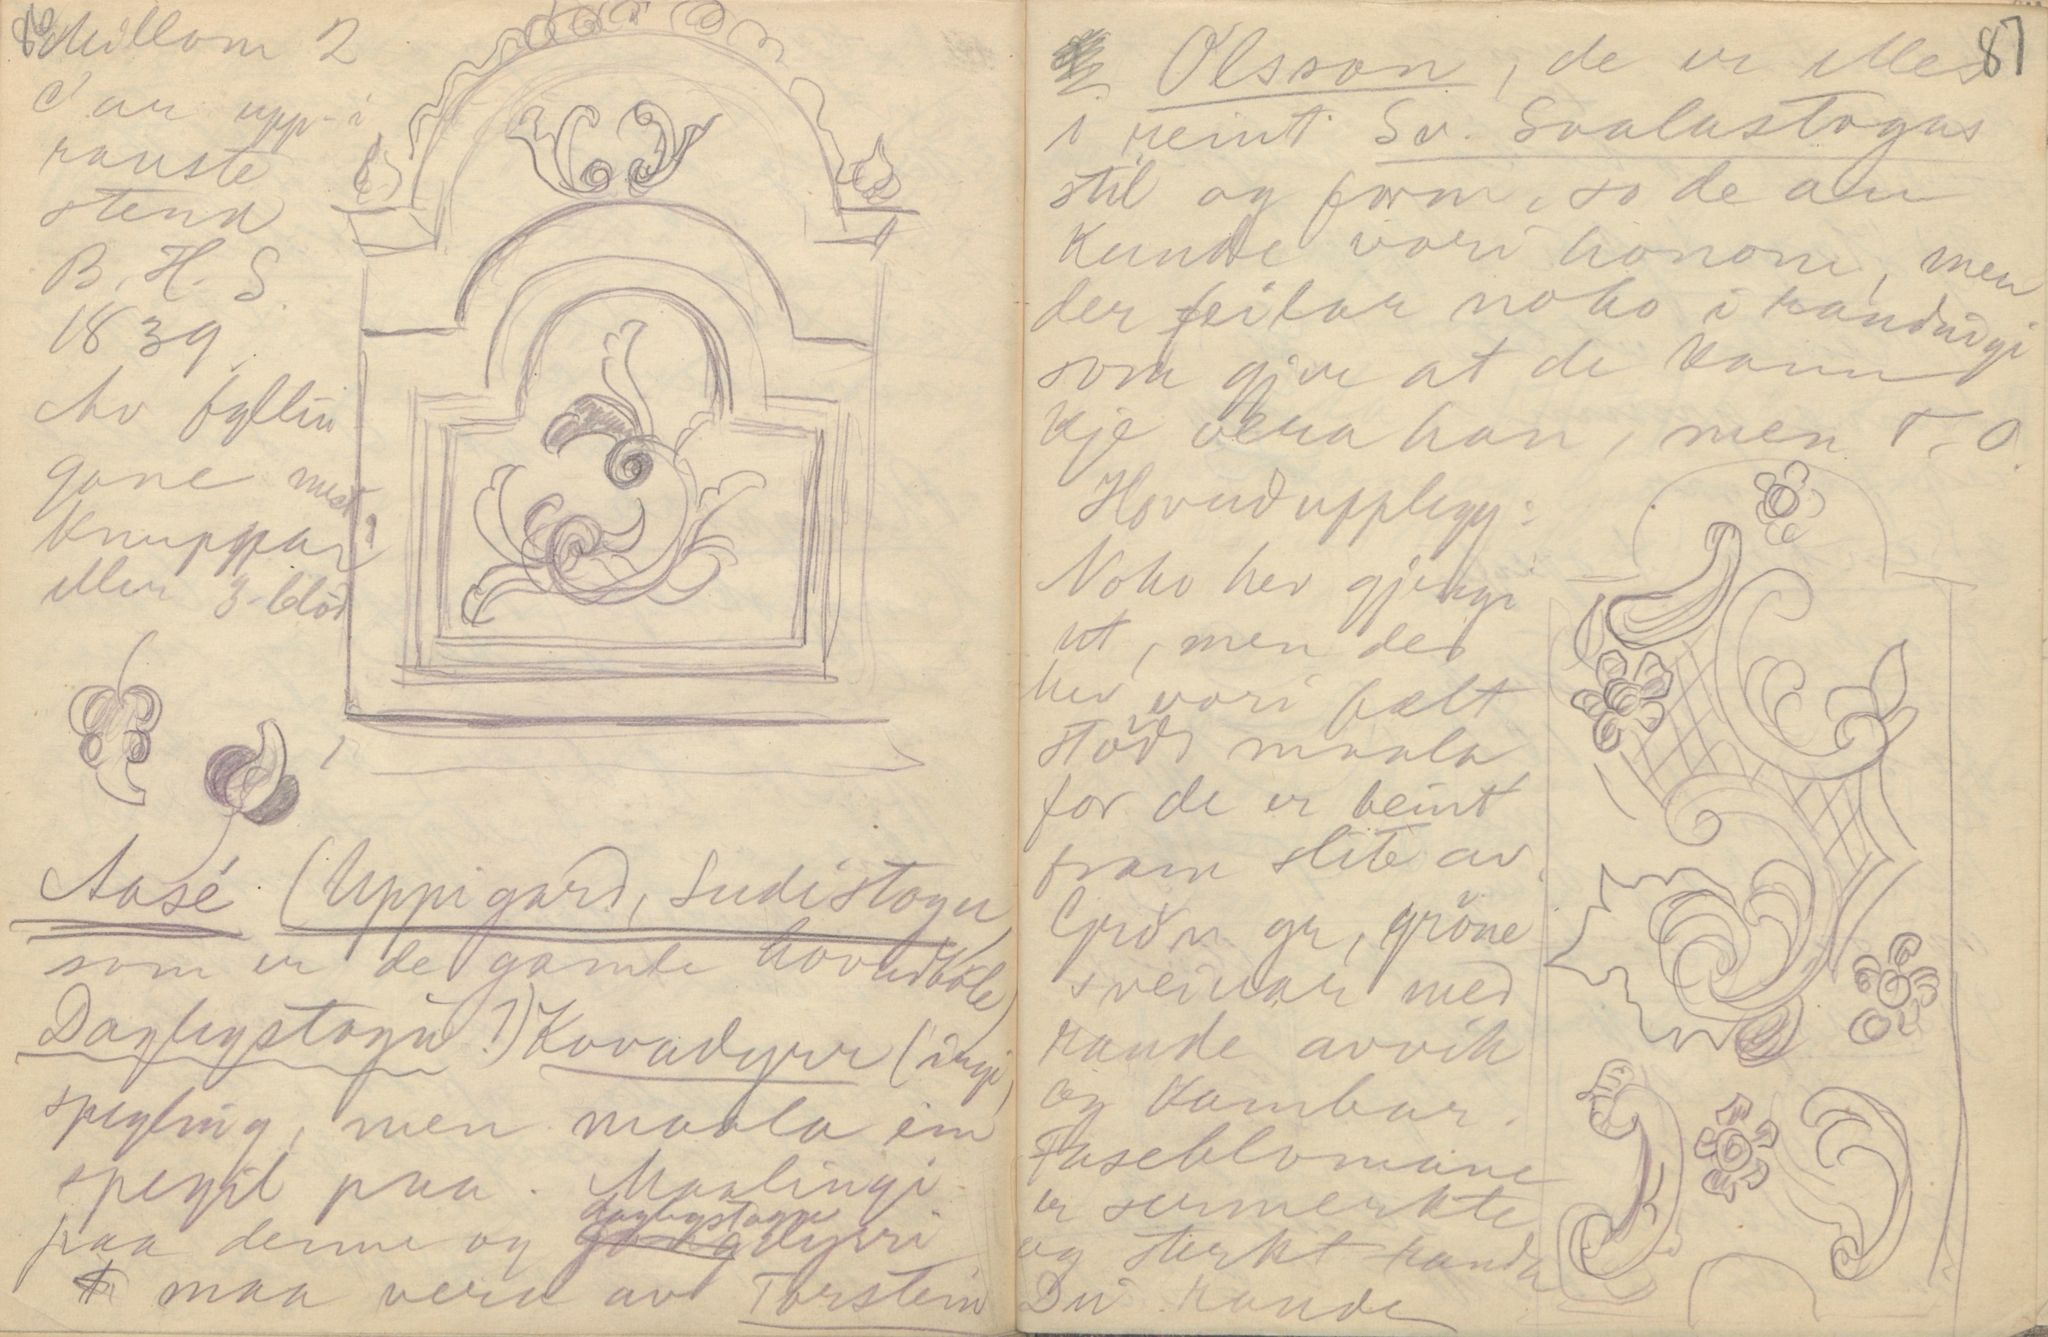 86
Millom 2
C'ar upp-i
rauste
stend
B. H. S.
1839.
Av fyllin
gane med
knuppar
eller 3-blöd
Aasé (Uppigard, Sudistogu
som er de gamle hovudböle)
Daglegstogu!) Kovadyrr (ingi
spegling, men maala ein
spegil paa. Maalingi
daglegstogu
paa denne og dyrri
maa vera av Torstein
87
Olsson, de er elles
i reint Sv. Svalastogas
stil og form, so de au
kunde vori honom, men
der feilar noko i handlagi
som gjer at de kann
kje vera han, men T. O.
Hovudupplegg:
Noko hev gjengi
ut, men der
hev vori fælt
stödt maala
for de er beint
fram slite av.
Grön gr, gröne
sveivar med
raude avvik
og kambar.
Faseblomane
er sermerkte
og sterkt runda
Dei raude